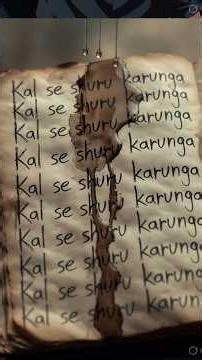 Kal se shuru karunga
Kal se shuru karunga
Kal se shuru karunga
Kal se shuru karunga
Kal se shuru karunga
Kal se shuru karunga
Kal se shuru karunga
Kal se shuru karunga
Kal se shuru karunga
Kal se shuru karun